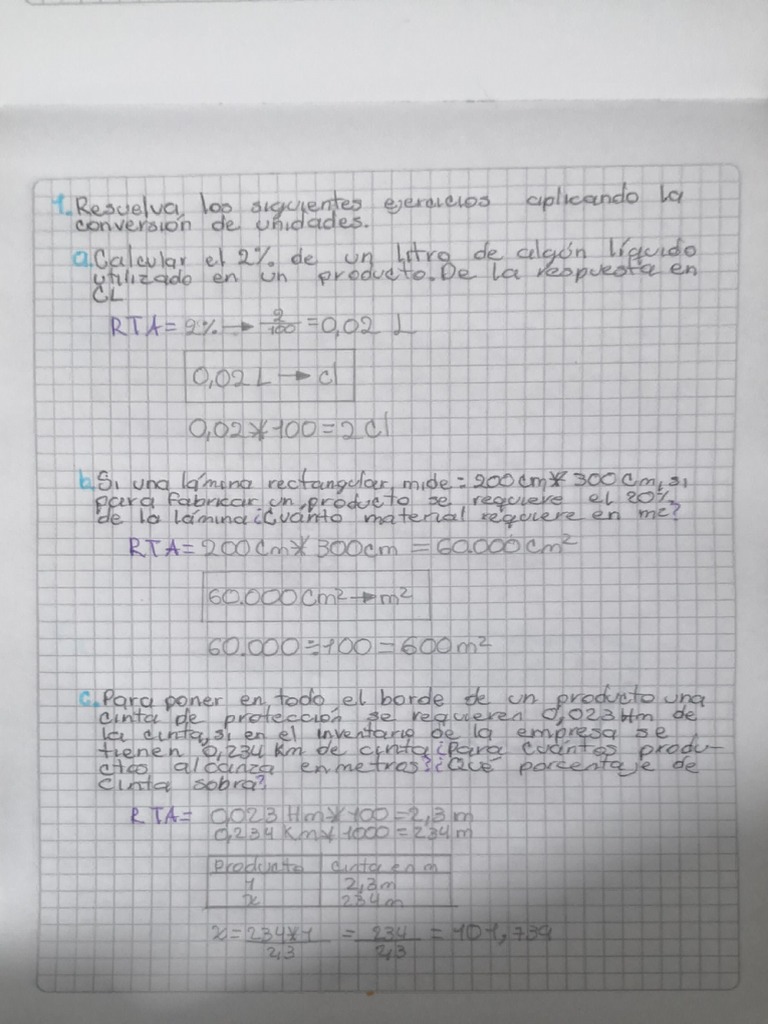 1. Resuelva los siguientes ejercicios aplicando la
conversión de unidades.
a. Calcular el 2% de un litro de algún líquido
utilizado en un producto. De la respuesta en
CL
RTA= 2% → 2/100 = 0,02 L
0,02 L → cl
0,02 * 100 = 2 Cl
b. Si una lámina rectangular mide = 200 cm * 300 cm, si
para fabricar un producto se requiere el 20%
de la lámina ¿Cuánto material requiere en mc?
RTA= 200 Cm * 300 cm = 60.000 cm²
60.000 Cm² → m²
60.000 ÷ 100 = 600 m²
c. Para poner en todo el borde de un producto una
cinta de protección se requieren 0,023 Hm de
la cinta, si en el inventario de la empresa se
tienen 0,234 Km de cinta ¿Para cuántos produ-
ctos alcanza en metros? ¿Qué porcentaje de
cinta sobra?
RTA= 0,023 Hm * 100 = 2,3 m
0,234 Km * 1000 = 234 m
Producto cinta en m
1 2,3 m
x 234 m
x = 234*1/2,3 = 234/2,3 = 101,739